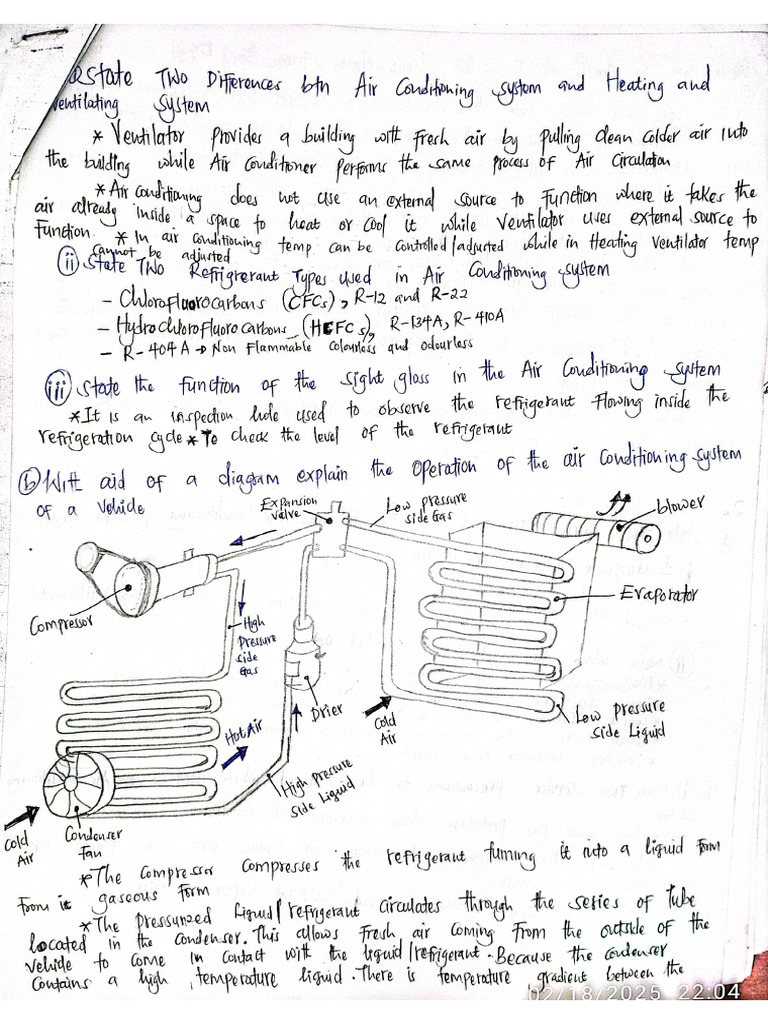 State Two Differences btn Air Conditioning system and Heating and
Ventilating System
* Ventilator provides a building with fresh air by pulling clean colder air into
the building while Air Conditioner performs the same process of Air Circulation
* Air conditioning does not use an external source to function where it takes the
air already inside a space to heat or cool it while Ventilator uses external source to
function. * In air conditioning temp can be controlled/adjusted while in Heating Ventilator temp
cannot be adjusted
(ii) State Two Refrigrerant Types used in Air Conditioning system
- Chlorofluorocarbons (CFCs), R-12 and R-22
- Hydrochlorofluorocarbons (HFCs), R-134A, R-410A
- R-404A → Non Flammable colourless and odourless
(iii) State the function of the sight glass in the Air Conditioning system
* It is an inspection hole used to observe the refrigerant flowing inside the
refrigeration cycle * To check the level of the refrigerant
(b) With aid of a diagram explain the operation of the air conditioning system
of a vehicle
Expansion
valve
Low pressure
side Gas
blower
Compressor
Evaporator
High
Pressure
side
Gas
Drier
Hot Air
Cold
Air
Low pressure
side Liquid
High pressure
side Liquid
Cold
Air
Condenser
Fan
* The compressor compresses the refrigerant turning it into a liquid form
from it gaseous form
* The pressurized liquid/refrigerant circulates through the series of tube
located in the condenser. This allows fresh air coming from the outside of the
vehicle to come in contact with the liquid/refrigerant. Because the condenser
contains a high temperature liquid. There is temperature gradient between the
02/18/2025 22:04